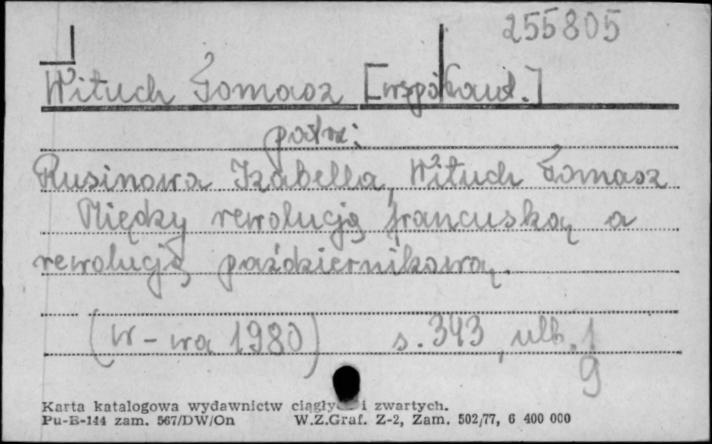 255805
Wituch Tomasz [współaut.]
patrz:
Rusinowa Izabella, Wituch Tomasz
Między rewolucją francuską a
rewolucją październikową.
(W-wa 1980) s. 343, ulb. 1
9
Karta katalogowa wydawnictw ciągłych i zwartych.
Pu-B-144 zam. 567/DW/On W.Z.Graf. Z-2, Zam. 502/77, 6 400 000